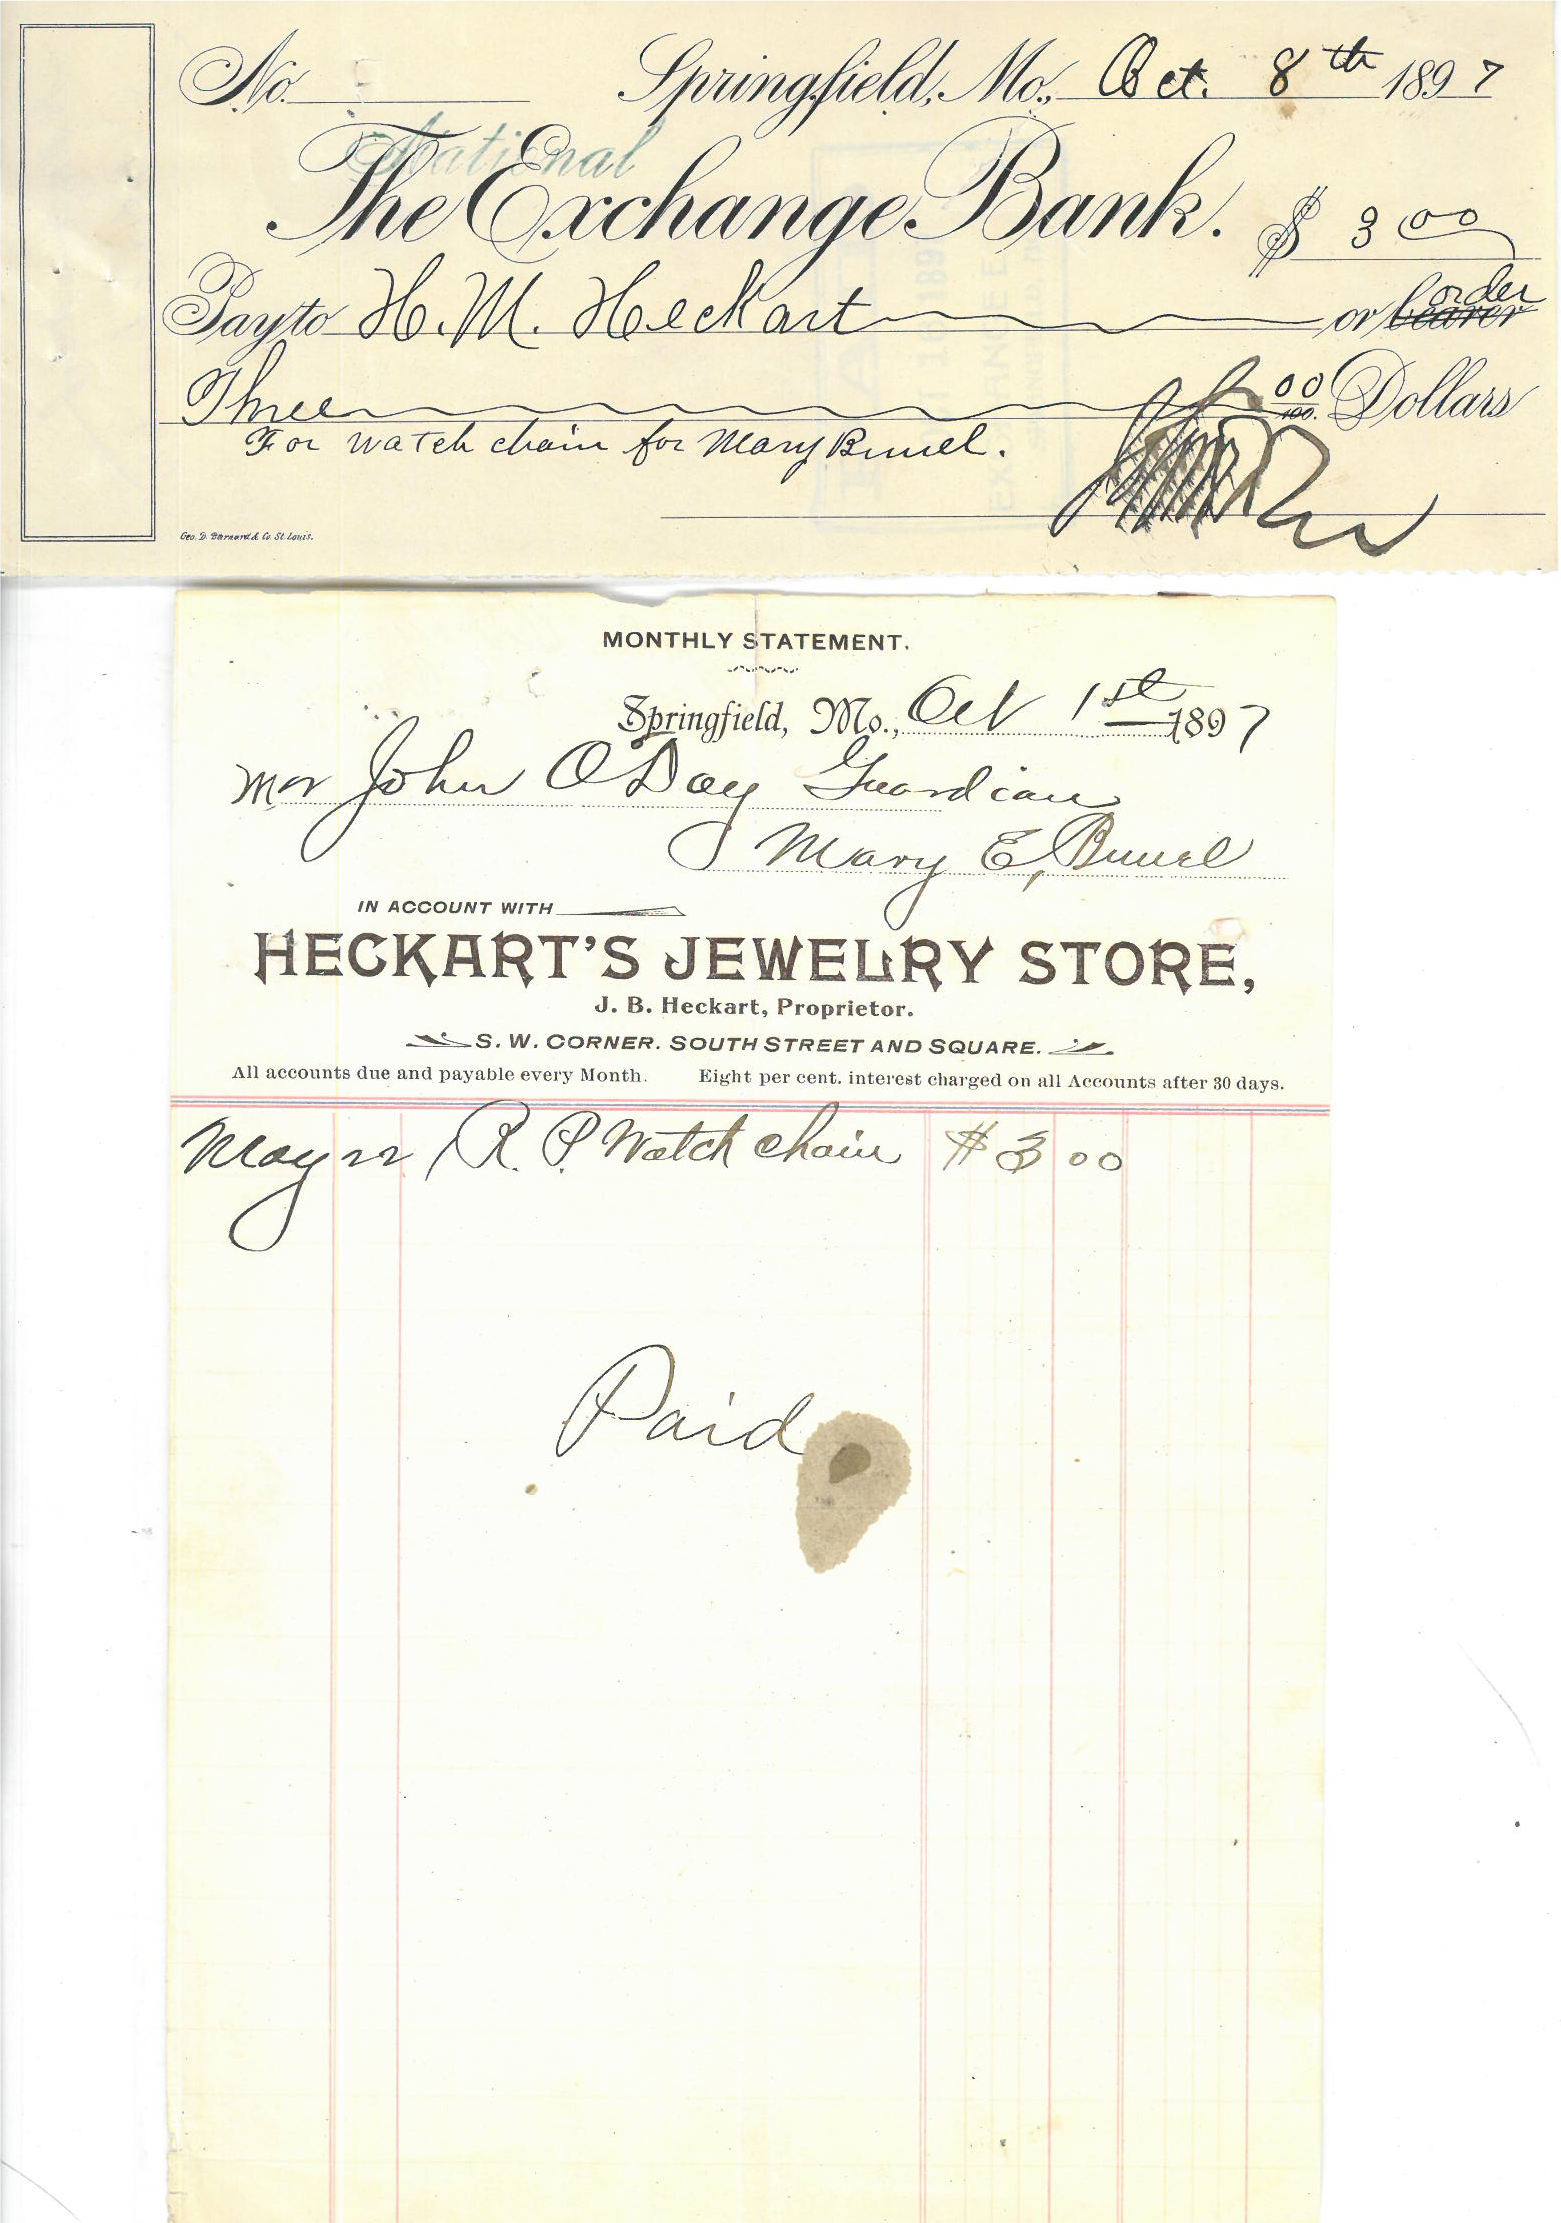 No. Springfield, Mo., Oct. 8th 1897
National
The Exchange Bank. $ 3 00
Pay to H. M. Heckart or bearer order
Three 00/100. Dollars
For watch chain for Mary Buuel.
Geo. D. Barnard & Co. St. Louis.
MONTHLY STATEMENT.
Springfield, Mo., Oct 1st 1897
Mr John O'Day Guardian
Mary E, Buuel
IN ACCOUNT WITH
HECKART'S JEWELRY STORE,
J. B. Heckart, Proprietor.
S. W. CORNER. SOUTH STREET AND SQUARE.
All accounts due and payable every Month. Eight per cent. interest charged on all Accounts after 30 days.
May 22 1 R. P. Watch chain $ 3 00
Paid